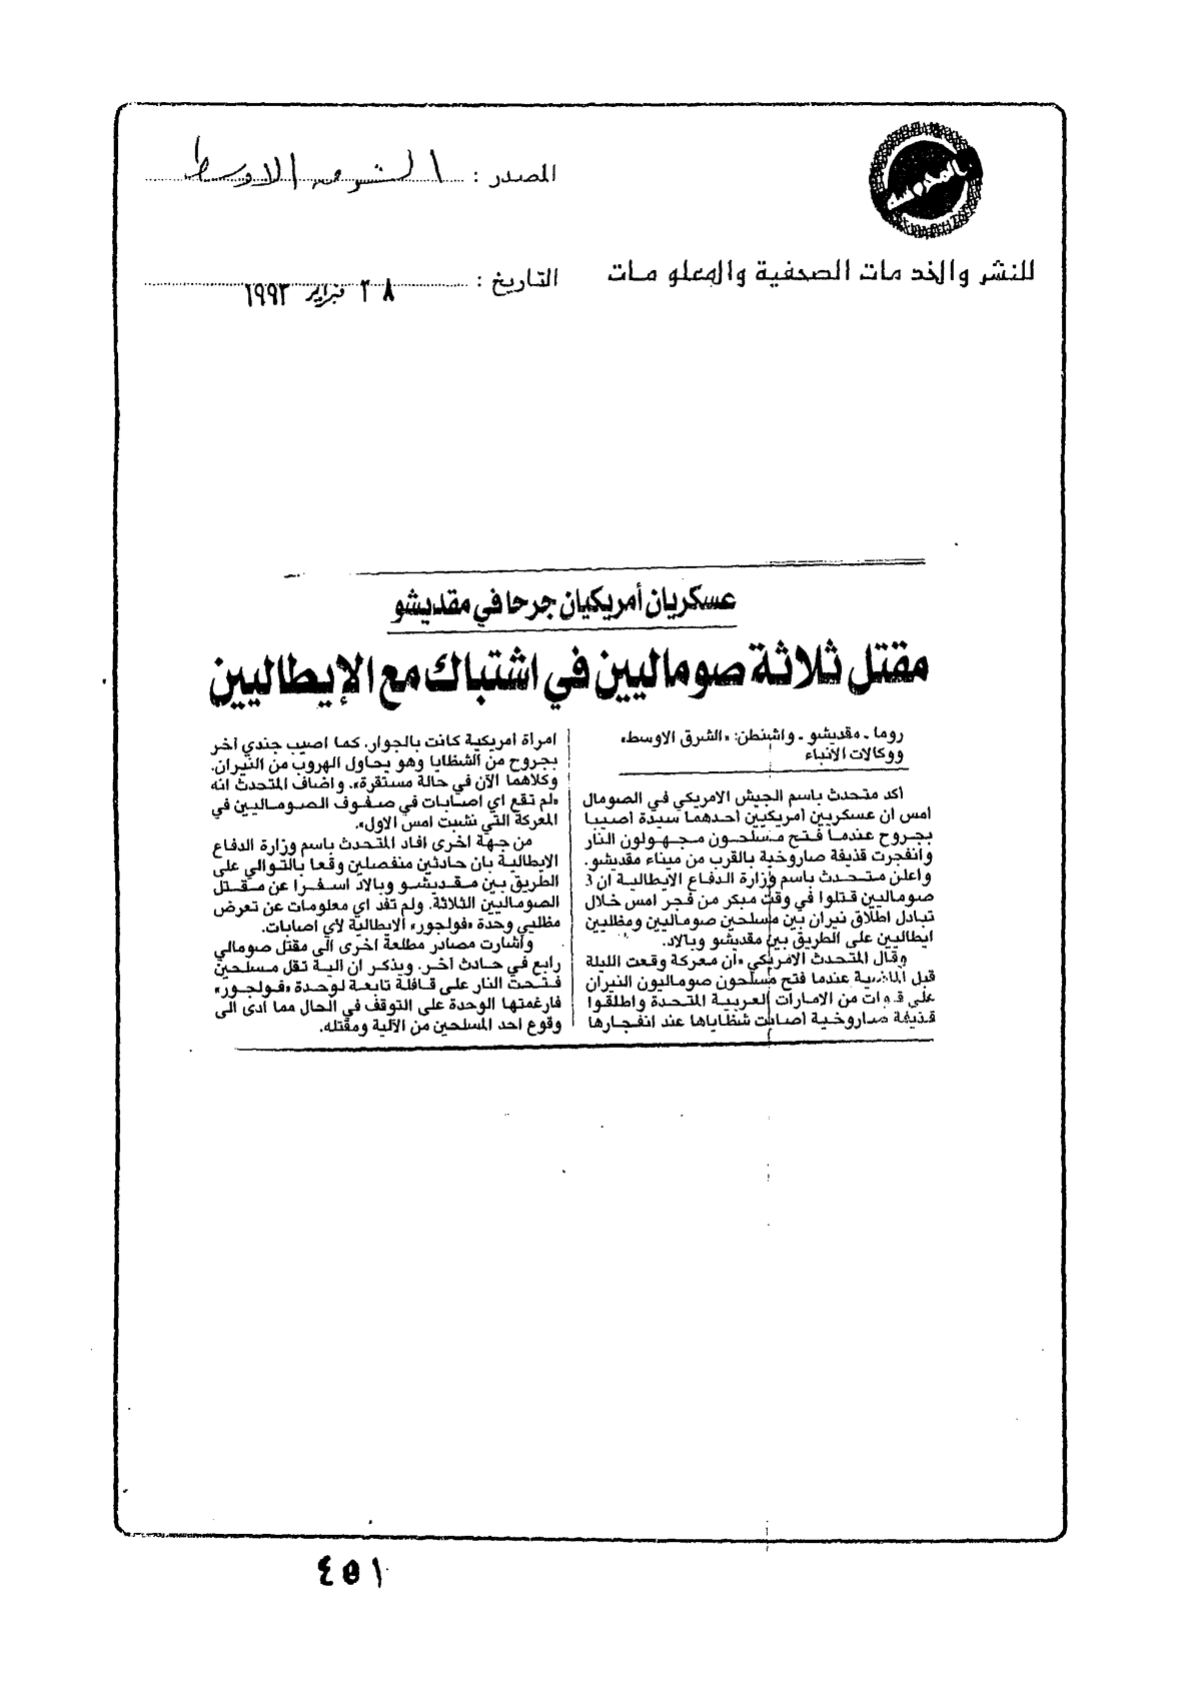 المحروسة
المصدر : الشرق الاوسط
للنشر والخدمات الصحفية والمعلومات
التاريخ : ٢٨ فبراير ١٩٩٣
عسكريان أمريكيان جرحا في مقديشو
مقتل ثلاثة صوماليين في اشتباك مع الإيطاليين
روما ـ مقديشو ـ واشنطن: «الشرق الاوسط»
ووكالات الانباء
أكد متحدث باسم الجيش الامريكي في الصومال
امس ان عسكريين امريكيين احدهما سيدة اصيبا
بجروح عندما فتح مسلحون مجهولون النار
وانفجرت قذيفة صاروخية بالقرب من ميناء مقديشو.
واعلن متحدث باسم وزارة الدفاع الايطالية ان 3
صوماليين قتلوا في وقت مبكر من فجر امس خلال
تبادل اطلاق نيران بين مسلحين صوماليين ومظليين
ايطاليين على الطريق بين مقديشو وبالاد.
وقال المتحدث الامريكي «ان معركة وقعت الليلة
قبل الماضية عندما فتح مسلحون صوماليون النيران
على قوات من الامارات العربية المتحدة واطلقوا
قذيفة صاروخية اصابت شظاياها عند انفجارها
امراة امريكية كانت بالجوار. كما اصيب جندي آخر
بجروح من الشظايا وهو يحاول الهروب من النيران.
وكلاهما الآن في حالة مستقرة». واضاف المتحدث انه
«لم تقع اي اصابات في صفوف الصوماليين في
المعركة التي نشبت امس الاول».
من جهة اخرى افاد المتحدث باسم وزارة الدفاع
الايطالية بان حادثين منفصلين وقعا بالتوالي على
الطريق بين مقديشو وبالاد اسفرا عن مقتل
الصوماليين الثلاثة. ولم تفد اي معلومات عن تعرض
مظليي وحدة «فولجور» الايطالية لأي اصابات.
واشارت مصادر مطلعة اخرى الى مقتل صومالي
رابع في حادث آخر. ويذكر ان آلية تقل مسلحين
فتحت النار على قافلة تابعة لوحدة «فولجور»
فارغمتها الوحدة على التوقف في الحال مما ادى الى
وقوع احد المسلحين من الآلية ومقتله.
٤٥١